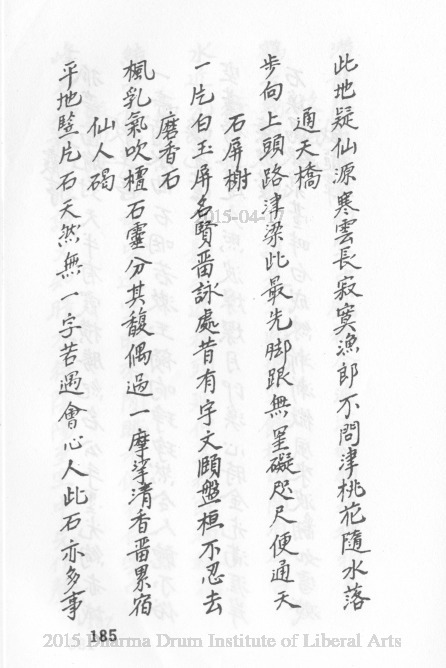 此地疑仙源寒雲長寂寞漁郎不問津桃花隨水落
通天橋
步向上頭路津梁此最先脚跟無罣礙咫尺便通天
石屏榭
一片白玉屏名賢畱詠處昔有宇文頤盤桓不忍去
磨香石
楓乳氣吹檀石靈分其馥偶過一摩挲清香畱累宿
仙人碣
平地竪片石天然無一字若遇會心人此石亦多事
2015-04-17
185
2015 Dharma Drum Institute of Liberal Arts